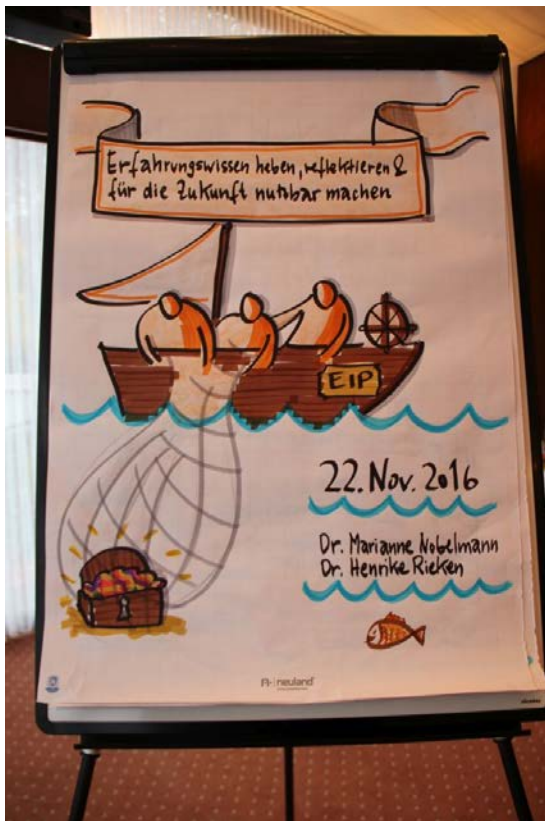 Erfahrungswissen heben, reflektieren &
für die Zukunft nutzbar machen
EIP
22. Nov. 2016
Dr. Marianne Nobelmann
Dr. Henrike Rieken
neuland